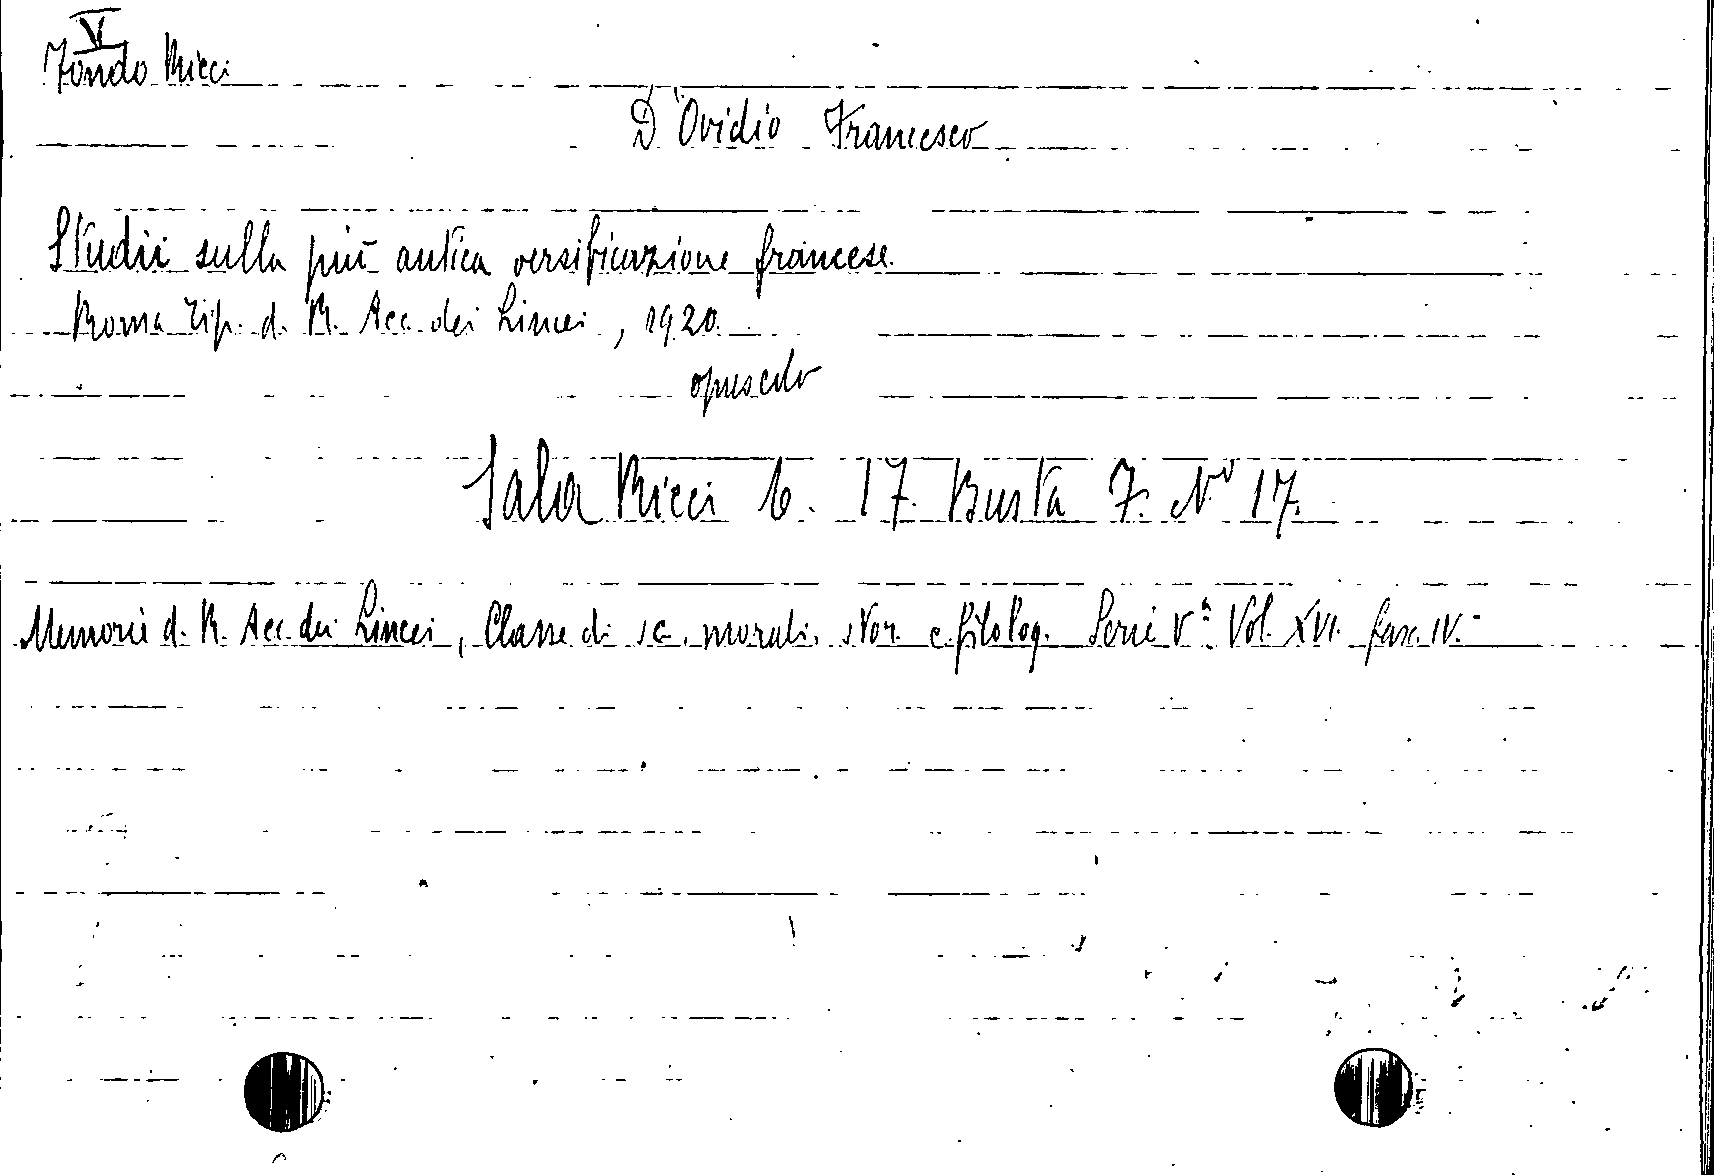 V
Fondo Ricci
D'Ovidio Francesco
Studii sulla più antica versificazione francese.
Roma Tip. d. R. Acc. dei Lincei, 1920.
opuscolo
Sala Ricci 6. 17. Busta 7. N° 17.
Memorie d. R. Acc. dei Lincei, Classe di sc. morali, stor. e filolog. Serie Vª Vol. XVI. fasc. IV.-